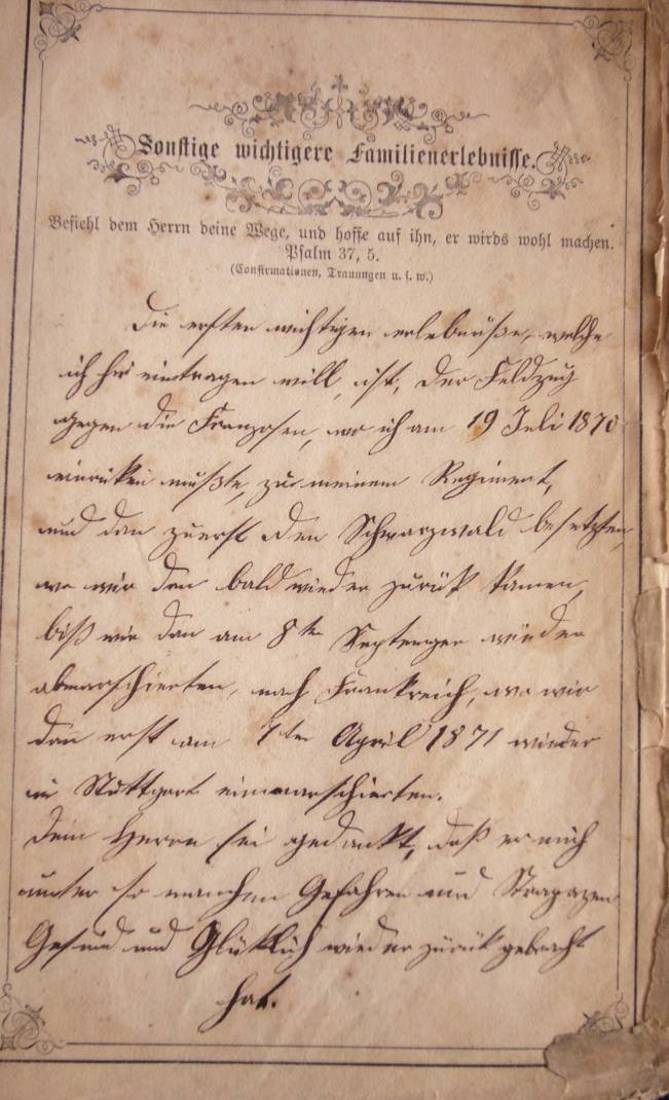 Sonstige wichtigere Familienerlebnisse.
Befiehl dem Herrn deine Wege, und hoffe auf ihn, er wirds wohl machen.
Psalm 37, 5.
(Confirmationen, Trauungen u. s. w.)
Die ersten wichtigen erlebnüße, welche
ich hir eintragen will, ist, Der Feldzug
gegen die Franzosen, wo ich am 19 Juli 1870
einrüken mußte, zu meinem Regiment,
und dan zuerst den Schwarzwald besetzten,
wo wir dan bald wieder zurük kamen,
biß wir dan am 8ten wieder
abmarschierten, nach Frankreich, wo wir
dan erst am 7ten April 1871 wieder
in Stuttgart einmarschierten.
Dem Herrn sei gedankt, daß er mich
unter so manchen Gefahren und Strapazen
Gesund und Glüklich wieder zurük gebracht
hat.